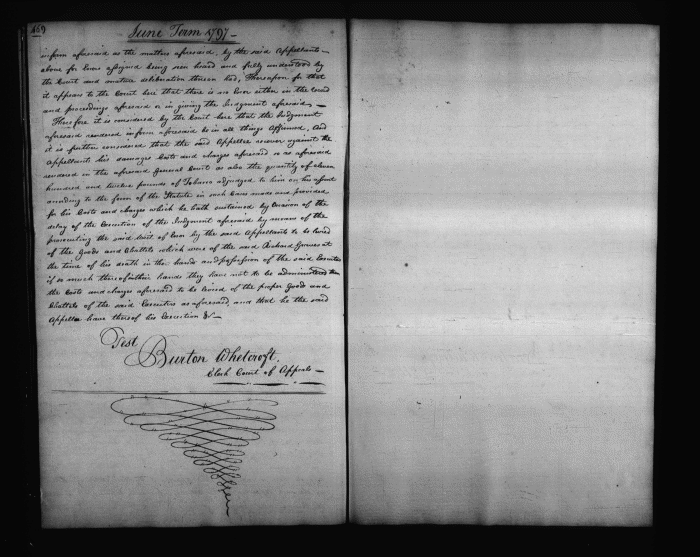 469
June Term 1797 –
inform aforesaid as the matters aforesaid, by the said Appellants –
above for Error assigned being seen heard and fully understood by
the Court and mature deliberation thereon had, Thereupon for that
it appears to the Court here that there is no Error either in the record
and proceedings aforesaid or in giving the Judgment aforesaid, –
Therefore it is considered by the Court here that the Judgment
aforesaid rendered inform aforesaid be in all things Affirmed, And
it is further considered that the said Appellee recover against the
Appellants his damages Costs and charges aforesaid so as aforesaid
rendered in the aforesaid General Court as also the quantity of eleven
hundred and twelve pounds of Tobacco adjudged to him on his
according to the form of the Statute in such Cases made and provided
for his Costs and charges which he hath sustained by Occasion of the
delay of the Execution of the Judgment aforesaid by means of the
prosecuting the said Writ of Error by the said Appellants to be levied
of the Goods and Chattels which were of the said Richard at
the time of his death in the hands and possession of the said Executors
if so much thereof in their hands they have not to be administered then
the Costs and charges aforesaid to be levied of the proper Goods and
Chattels of the said Executors as aforesaid, and that he the said
Appellee have thereof his Execution &c –
Test
Burton Whetcroft,
Clerk Court of Appeals –